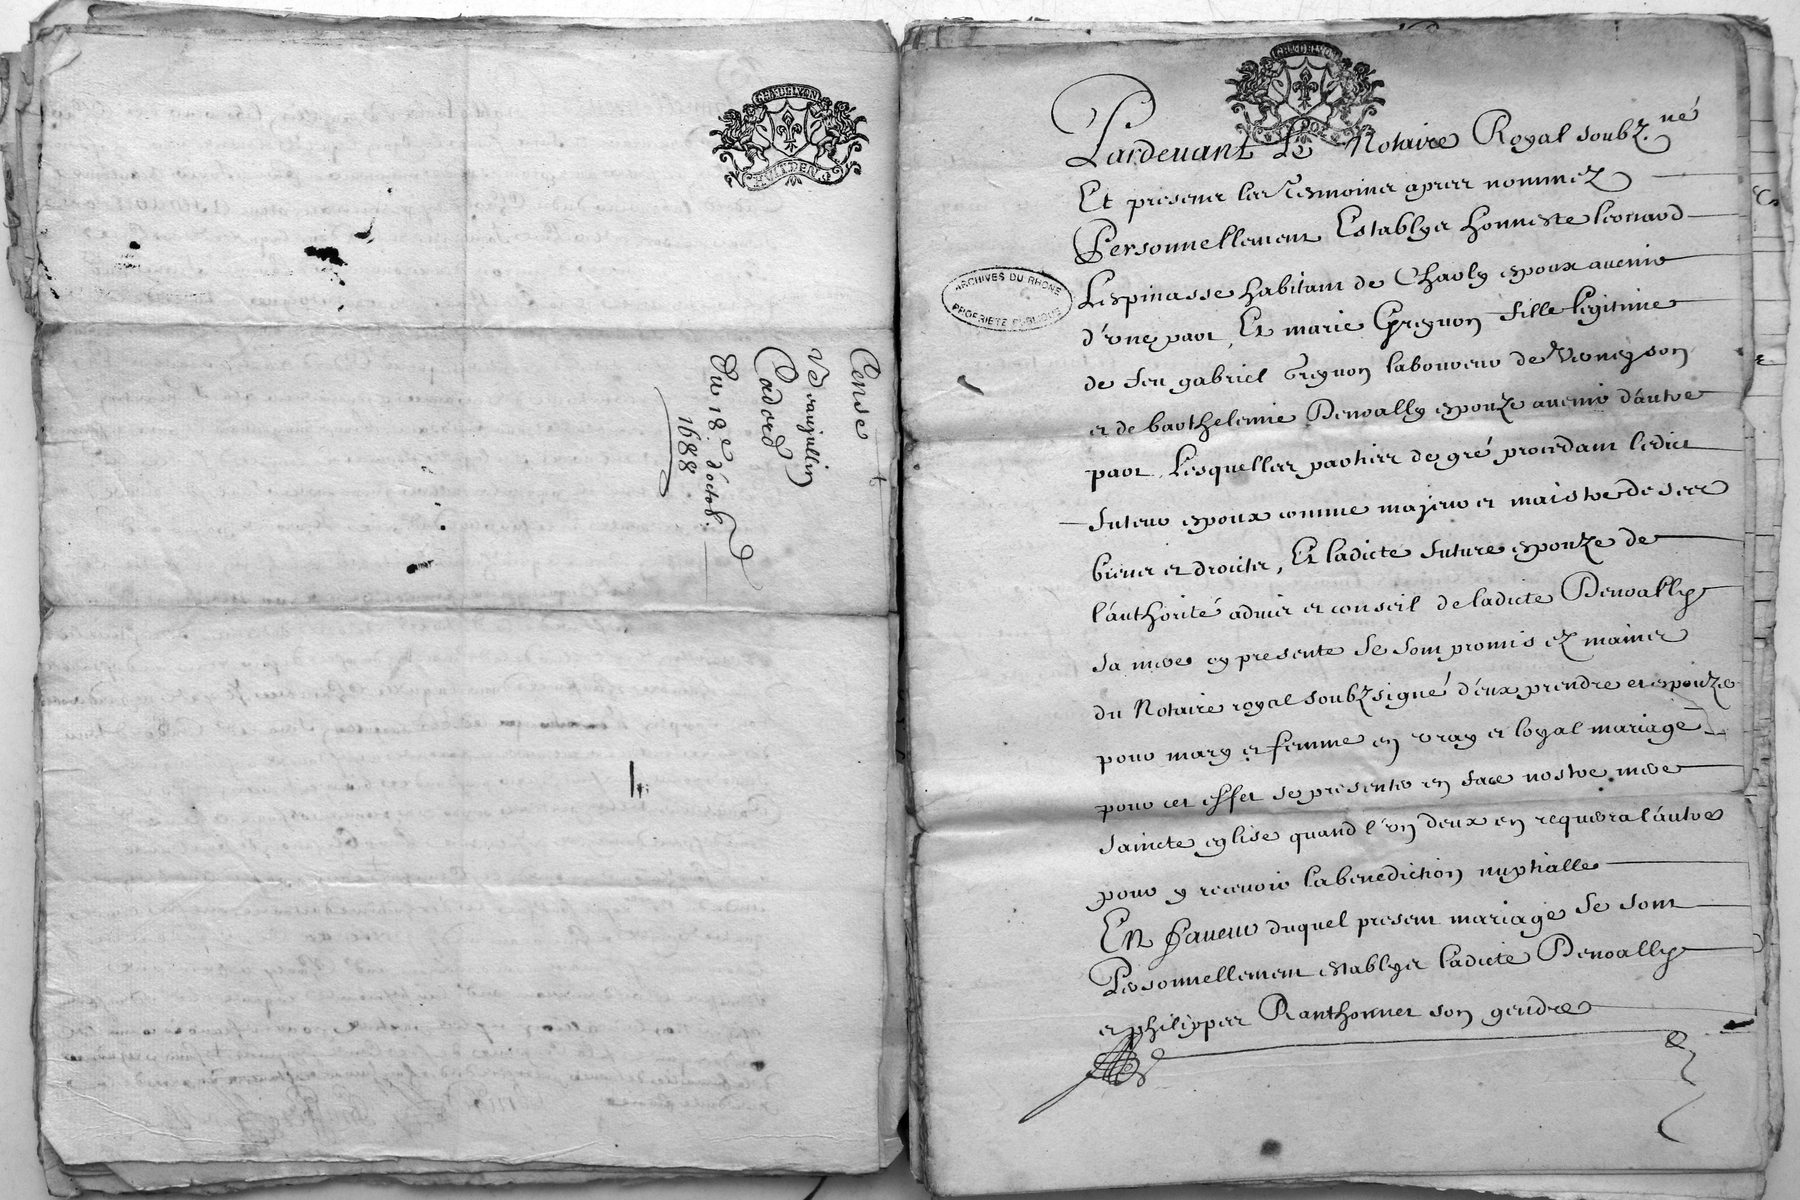 GEN.DE LYON
HVIT DEN
Cense
Vd vaujullin
Cadored
Du 18e d'octob.
1688
GEN.DE LYON
ARCHIVES DU RHONE
PROPRIETE PUBLIQUE
Pardevant Le Notaire Royal soubz.né
Et presens les tesmoins apres nommez
Personnellement Establyes honneste Leonard
Lespinasse habitant de Charly espoux avenir
d'une part, Et marie Greynon fille legitime
de feu gabriel Greynon laboureur de Verneyson
et de barthelemie Dervally espouze avenir d'autre
part, Lesquelles parties de gré procedant ledict
futeur espoux comme majeur et maistre de sees
biens et droictes, Et ladicte future espouze de
l'authorité advis et conseil de ladicte Dervally
sa mere cy presente se sont promis ez mains
du Notaire royal soubzsigné d'eux prendre et espouzer
pour mary et femme en vray et loyal mariage
pour cet effet se presenter en face nostre mere
saincte eglise quand l'un deux en requerra l'autre
pour y recevoir la benediction nuptialle
En faveur duquel present mariage se sont
Personnellement establyes ladicte Dervally
et philippes Ranthonnet son gendre